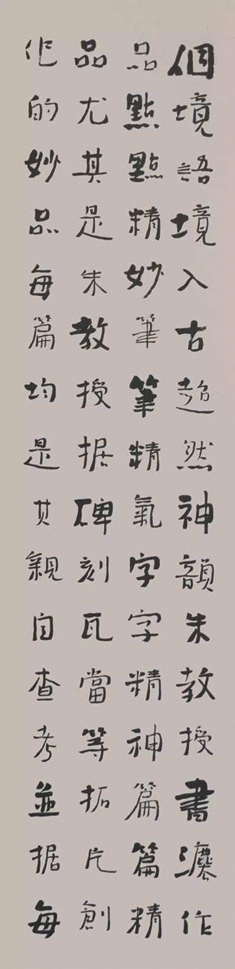 個境語境入古超然神韻朱教授書灋作
品點點精妙筆筆精氣字字精神篇篇精
品尤其是朱教授据碑刻瓦當等拓片創
作的妙品每篇均是其親自查考並据每